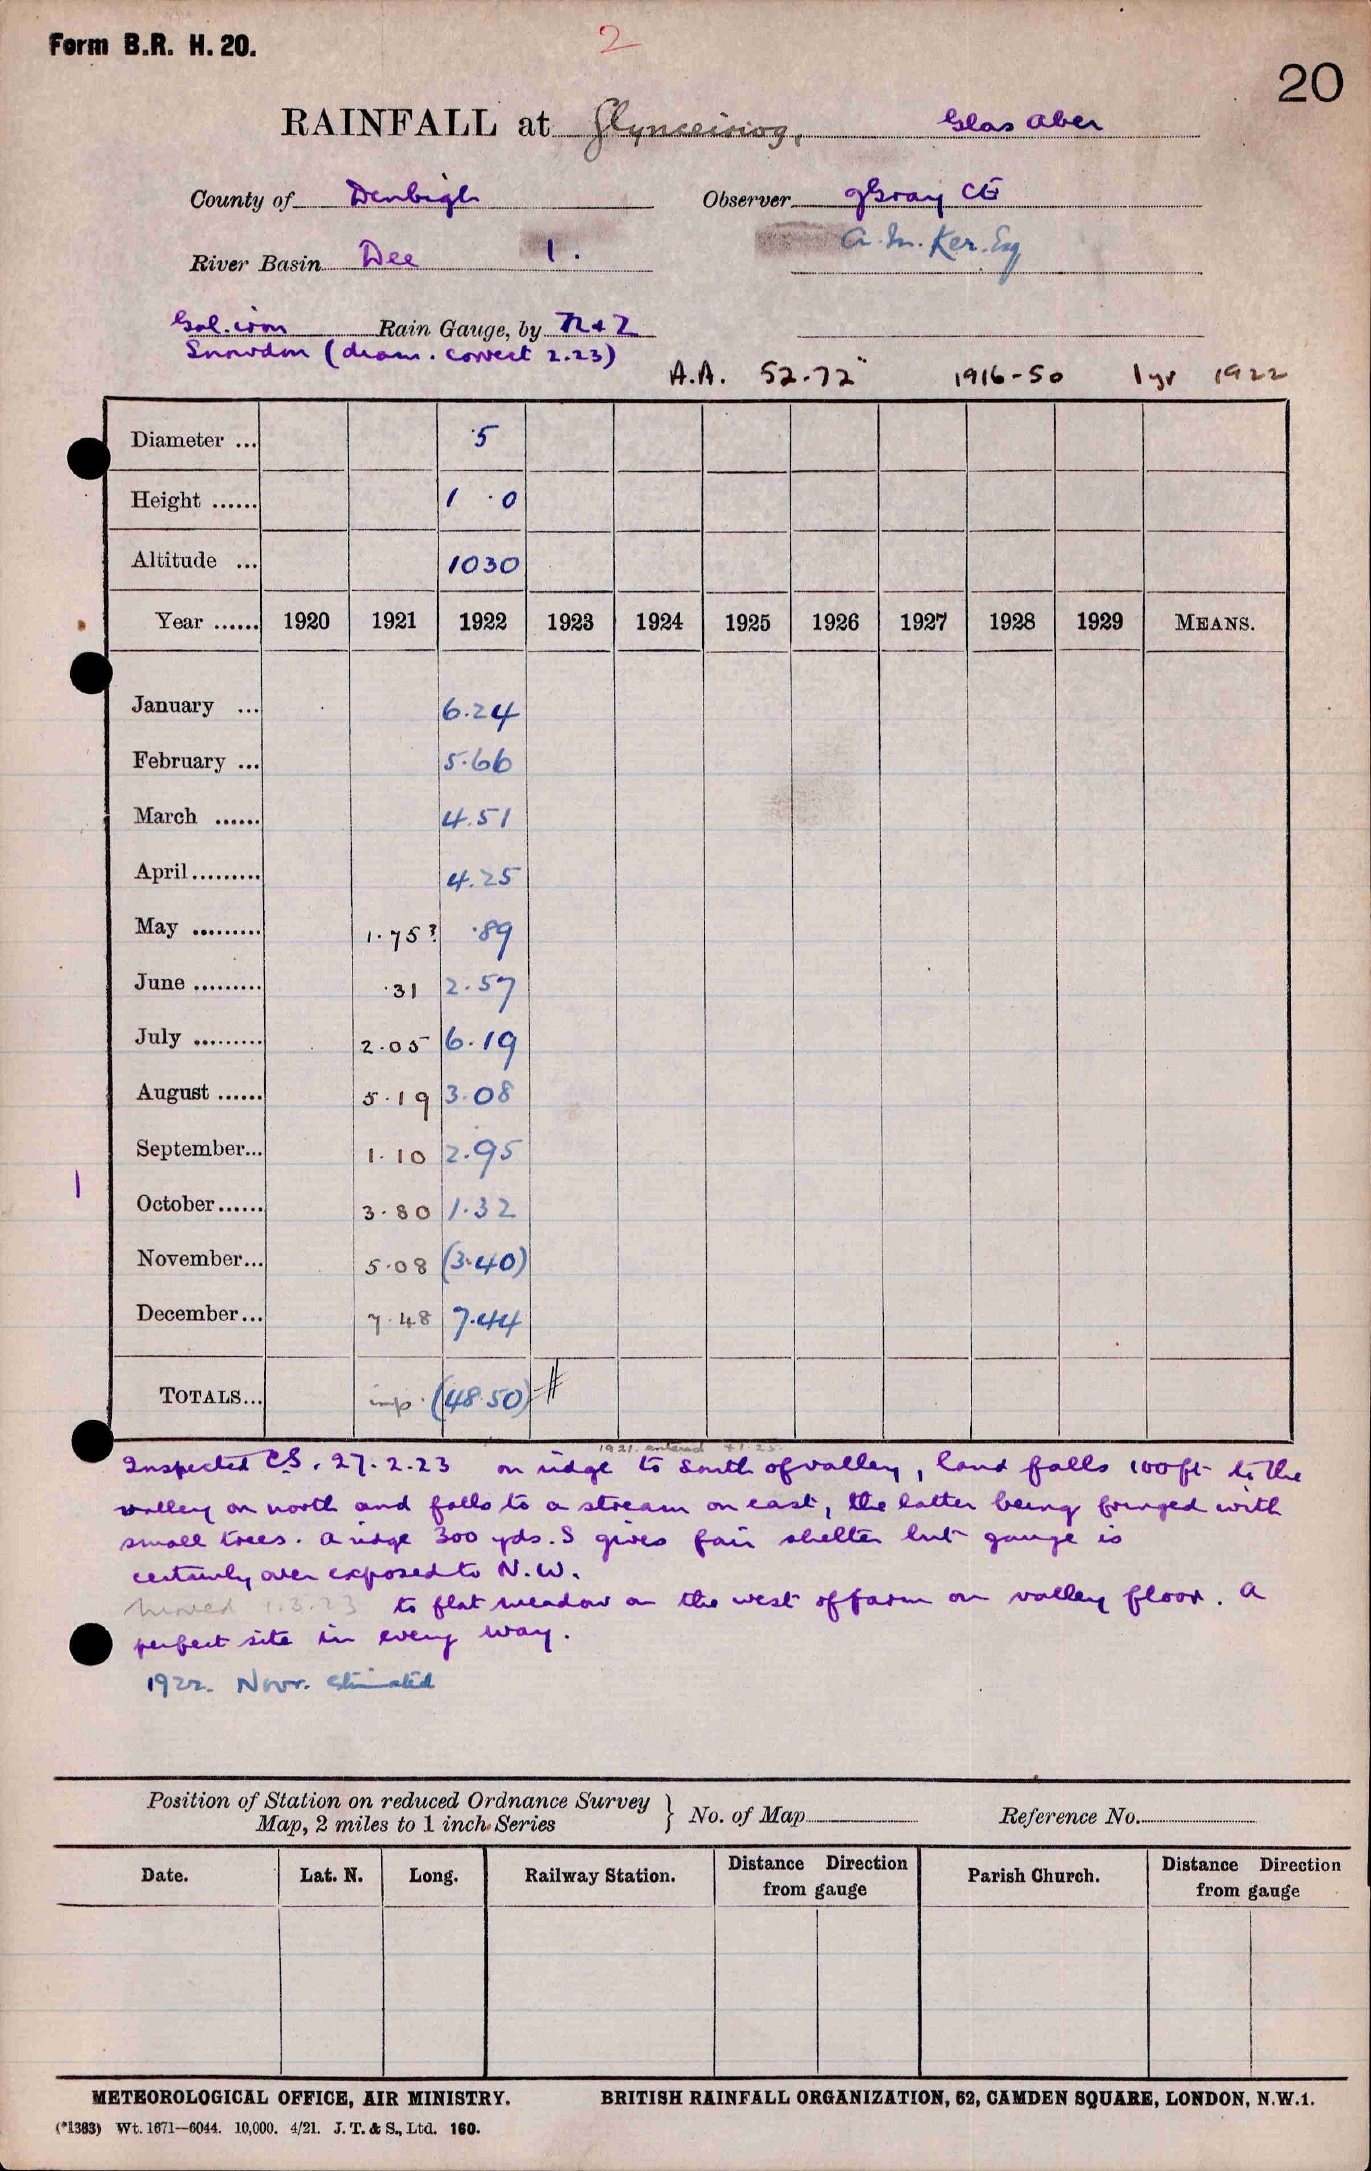 Form B.R. H. 20.
2
20
RAINFALL at Glynceiriog, Glas Aber
County of Denbigh Observer J Gray CE
River Basin Dee 1. A. M. Ker. Esq
Gal. iron Rain Gauge, by N & Z
Snowdon (diam. correct 2.23)
A.A. 52.72" 1916-50 1 yr 1922
Diameter ... 5
Height ...... 1 .0
Altitude ... 1030
Year ...... 1920 1921 1922 1923 1924 1925 1926 1927 1928 1929 MEANS.
January ... 6.24
February ... 5.66
March ...... 4.51
April......... 4.25
May ......... 1.75? .89
June ......... .31 2.57
July ......... 2.05 6.19
August ...... 5.19 3.08
September... 1.10 2.95
1
October...... 3.80 1.32
November... 5.08 (3.40)
December... 7.48 7.44
TOTALS... imp. (48.50) #
1921 entered
Inspected C.S. 27.2.23 on ridge to South of valley, land falls 100ft to the
valley on north and falls to a stream on east, the latter being fringed with
small trees. A ridge 300 yds. S gives fair shelter but gauge is
certainly over exposed to N.W.
Moved 1.3.23 to flat meadow on the west of farm on valley floor. A
perfect site in every way.
1922. Novr. estimated
Position of Station on reduced Ordnance Survey
Map, 2 miles to 1 inch Series } No. of Map Reference No.
Date. Lat. N. Long. Railway Station. Distance Direction from gauge Parish Church. Distance Direction from gauge
METEOROLOGICAL OFFICE, AIR MINISTRY. BRITISH RAINFALL ORGANIZATION, 62, CAMDEN SQUARE, LONDON, N.W.1.
(*1383) Wt. 1671—6044. 10,000. 4/21. J. T. & S., Ltd. 160.